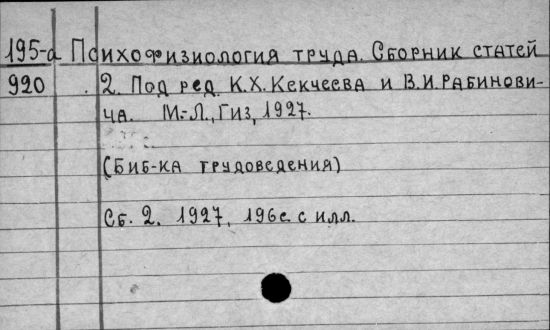 195-а Психофизиология труда. Сборник статей
920 . 2. Под ред. К.Х. Кекчеева и В.И. Рабинови-
ча. М.-Л., Гиз, 1927.
(Биб-ка трудоведения)
Сб. 2. 1927. 196с. с илл.